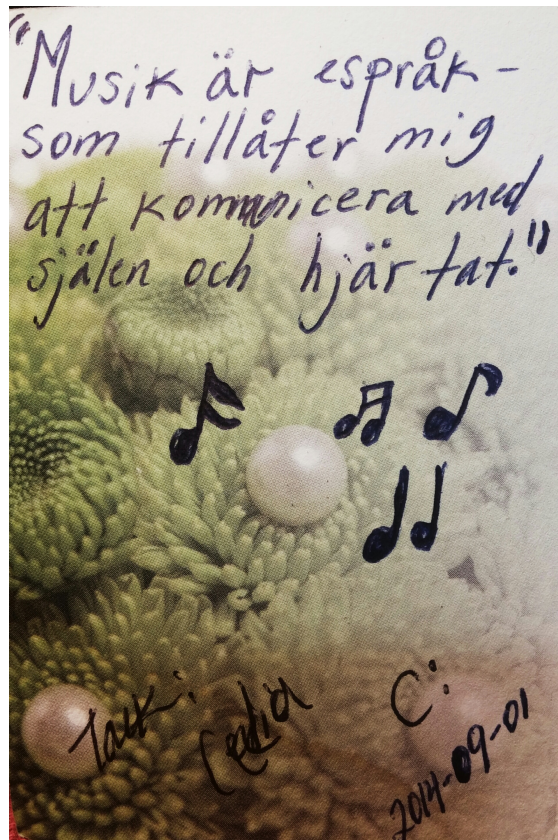 "Musik är espråk -
som tillåter mig
att kommunicera med
själen och hjärtat."
Tack:
C:
2014-09-01